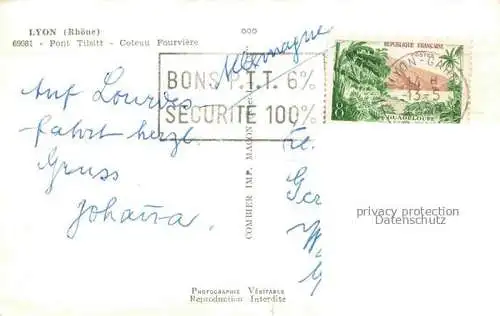 LYON (Rhône)
69081 - Pont Tilsitt - Coteau Fourvière
Allemagne
BONS P.T.T. 6%
SÉCURITÉ 100%
REPUBLIQUE FRANÇAISE
POSTES
LYON-GARE
13-5
8F
GUADELOUPE
Auf Lourdes
fahrt herzl.
Gruss
Johanna.
COMBIER IMP. MACON
privacy protection
Datenschutz
PHOTOGRAPHIE VÉRITABLE
Reproduction Interdite